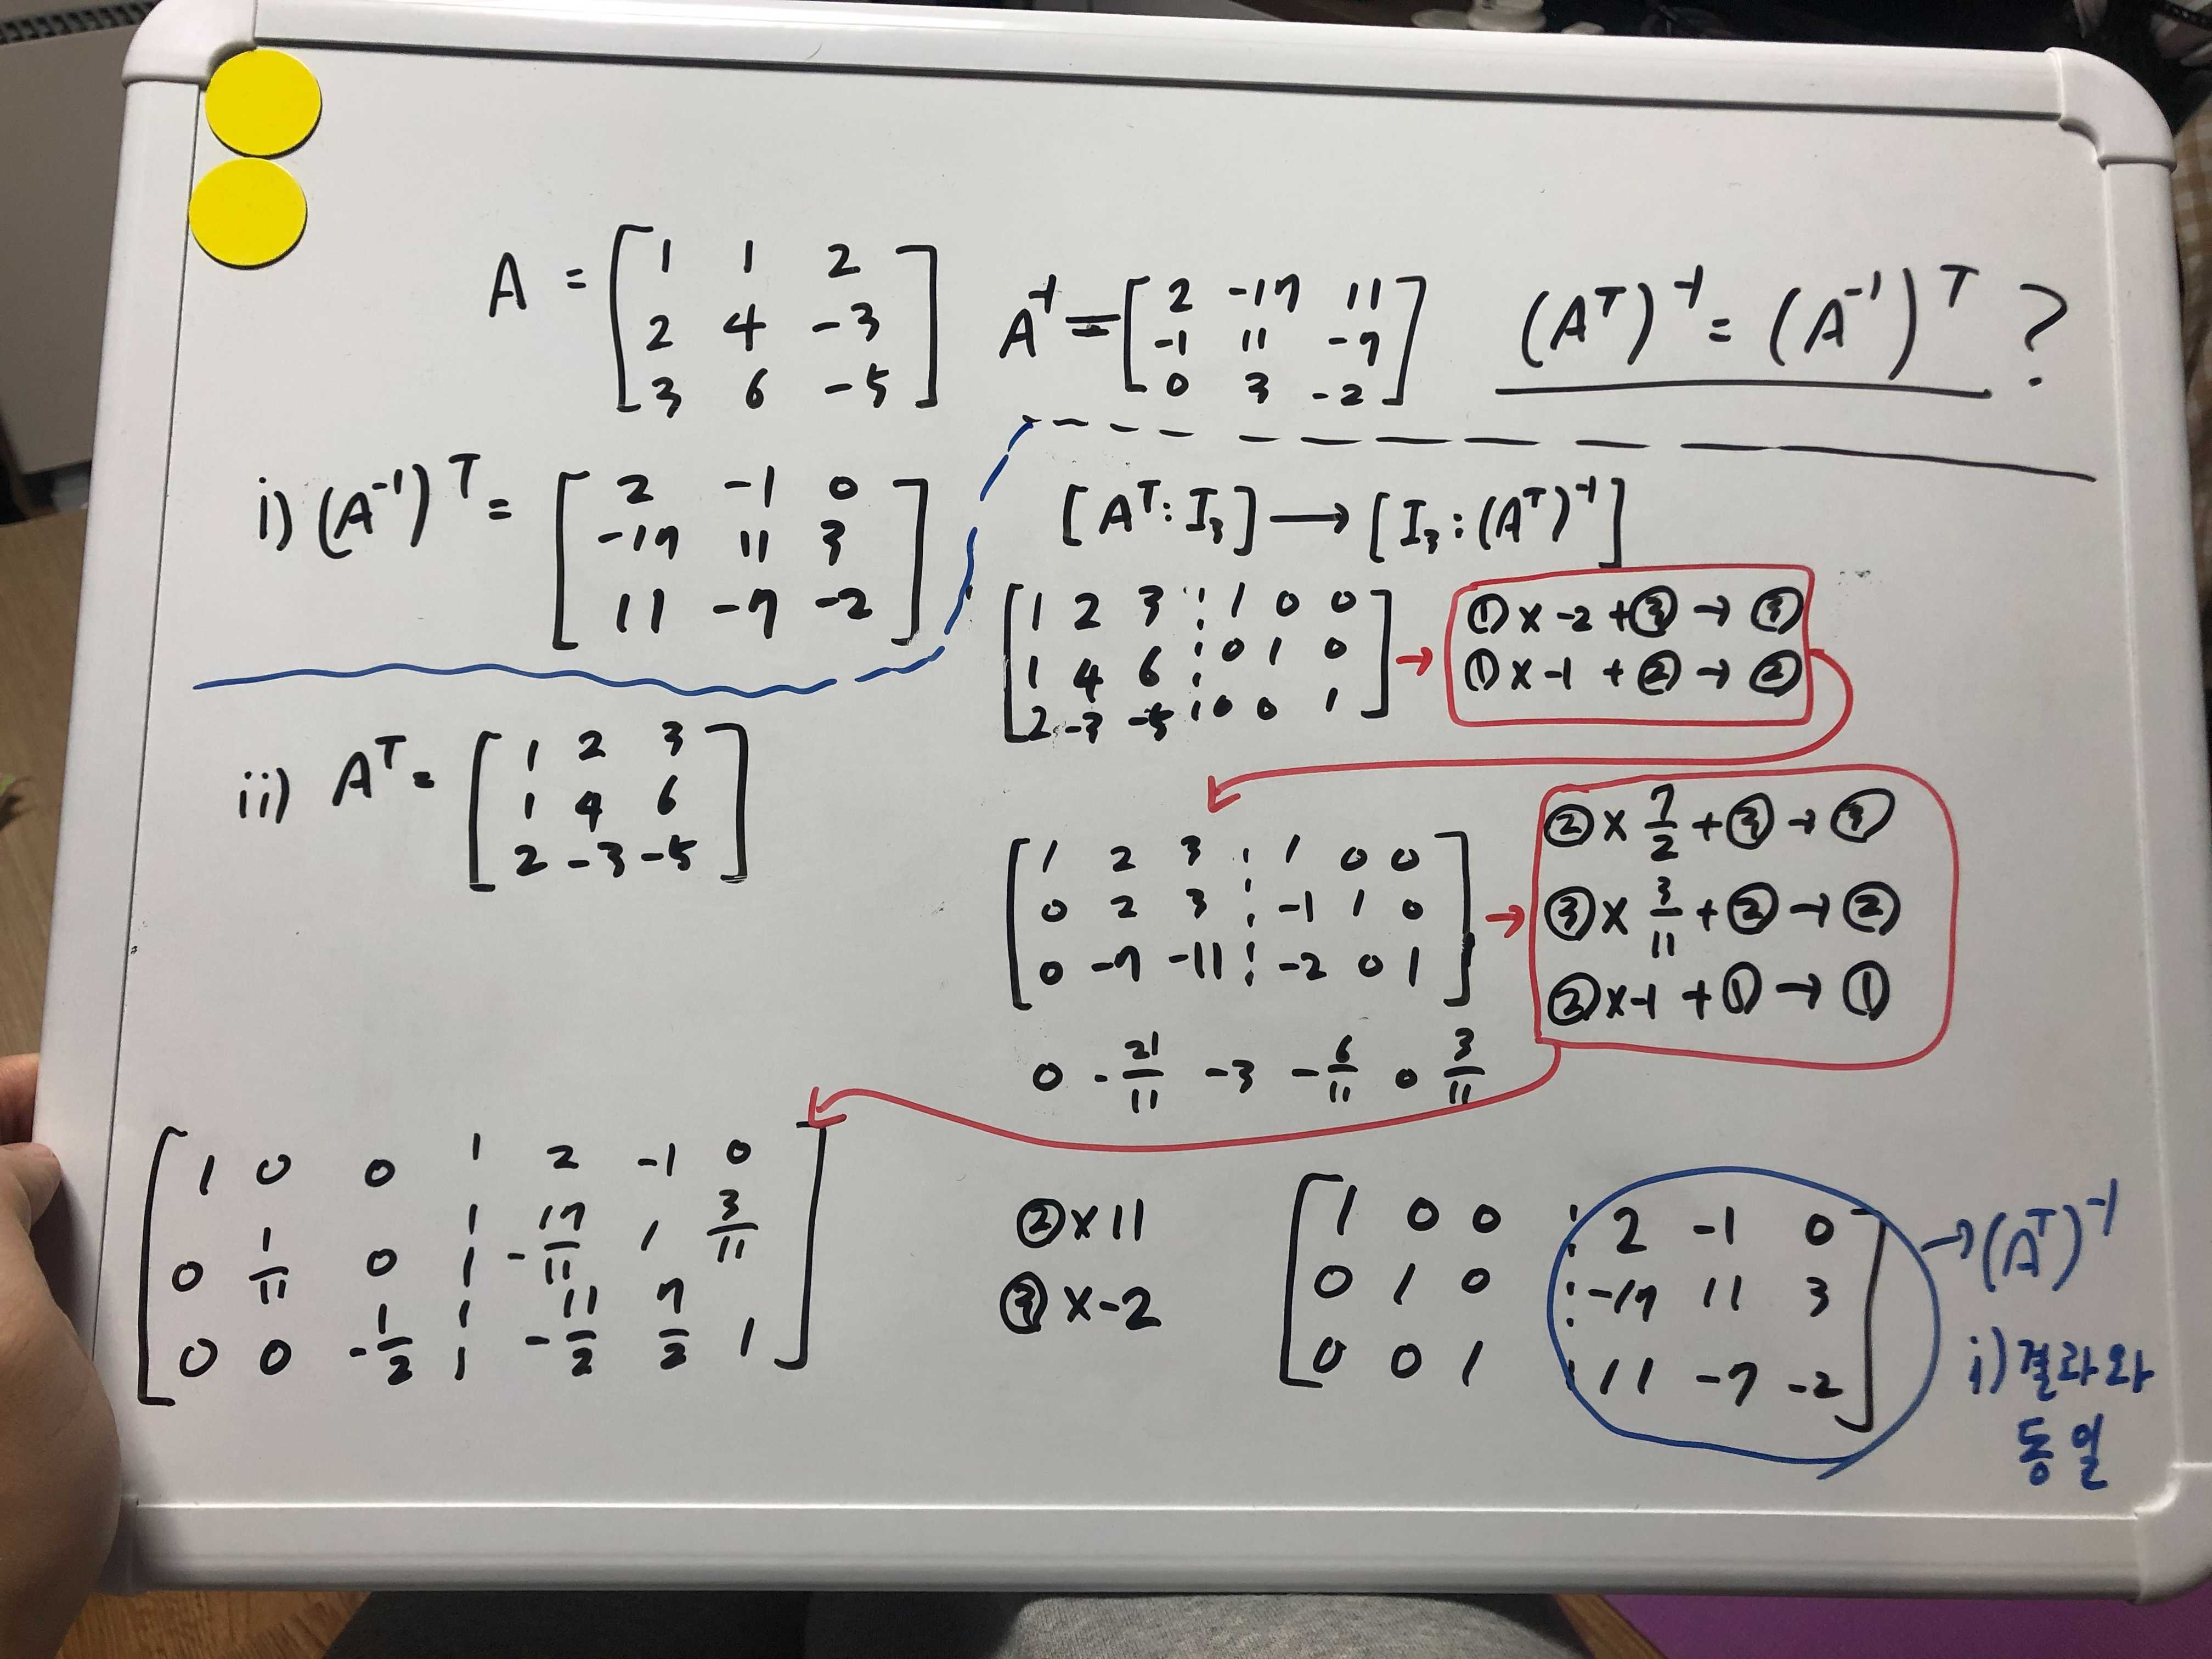 A = [ 1 1 2
2 4 -3
3 6 -5 ]
A⁻¹ = [ 2 -17 11
-1 11 -7
0 3 -2 ]
(Aᵀ)⁻¹ = (A⁻¹)ᵀ ?
i) (A⁻¹)ᵀ = [ 2 -1 0
-17 11 3
11 -7 -2 ]
ii) Aᵀ = [ 1 2 3
1 4 6
2 -3 -5 ]
[ Aᵀ : I₃ ] → [ I₃ : (Aᵀ)⁻¹ ]
[ 1 2 3 ¦ 1 0 0
1 4 6 ¦ 0 1 0
2 -3 -5 ¦ 0 0 1 ] →
① × -2 + ③ → ③
① × -1 + ② → ②
[ 1 2 3 ¦ 1 0 0
0 2 3 ¦ -1 1 0
0 -7 -11 ¦ -2 0 1 ] →
0 -21/11 -3 -6/11 0 3/11
② × 7/2 + ③ → ③
③ × 3/11 + ② → ②
② × -1 + ① → ①
[ 1 0 0 ¦ 2 -1 0
0 1/11 0 ¦ -17/11 1 3/11
0 0 -1/2 ¦ -11/2 7/2 1 ]
② × 11
③ × -2
[ 1 0 0 ¦ 2 -1 0
0 1 0 ¦ -17 11 3
0 0 1 ¦ 11 -7 -2 ]
→ (Aᵀ)⁻¹
i) 결과와
동일